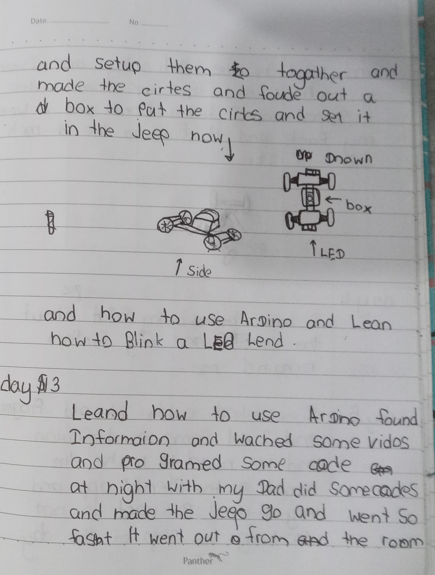 Date No
and setup them to togather and
made the cirtes and foude out a
box to put the cirts and set it
in the Jeep now
Drown
box
LED
Side
and how to use Ardino and Lean
how to Blink a LED Lend.
day 3
Leand how to use Ardino found
Informaion and wached some vidos
and programed some code
at night with my Dad did some codes
and made the Jeep go and went so
fasht It went out from the room
Panther